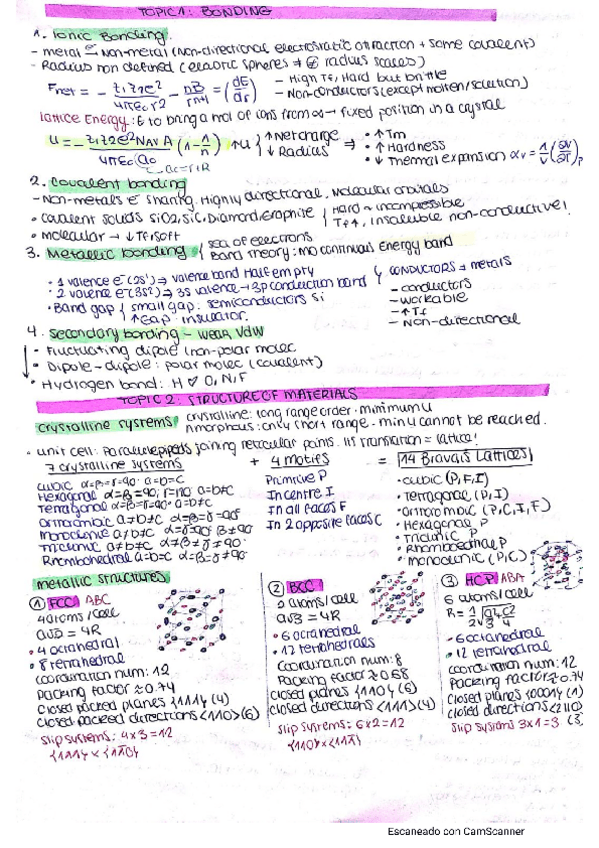 TOPIC 1: BONDING
1. Ionic Bonding.
- metal e⁻→ Non-metal (Non-directional electrostatic attraction + some covalent)
- Radius non defined (elastic spheres ≠ radius scales)
Fnet = - z₁z₂e²/4πε₀r² - nB/rⁿ⁺¹ = (dE/dr)
- High Tf/Hard but brittle
- Non-conductors (except molten/solution)
Lattice Energy: E to bring a mol of ions from ∞ → fixed position in a crystal
U = - z₁z₂e²NAV A/4πε₀ a₀ (1 - 1/n) ↑U { ↑Net charge ↓Radius ⇒
a₀=r+R
• ↑Tm
• ↑Hardness
• ↓ thermal expansion αv = 1/V (∂V/∂T)P
2. Covalent bonding
- Non-metals e⁻ sharing. Highly directional. Molecular orbitals
• Covalent solids SiO2, SiC, Diamond, Graphite { Hard ~ incompressible
Tf↑, insoluble non-conductive!
• Molecular → ↓Tf, soft
3. Metallic bonding { Sea of electrons
Band theory: MO continuous energy band
• 1 valence e⁻ (2s¹) ⇒ valence band Half empty
• 2 valence e⁻ (3s²) ⇒ 3s valence → 3p conduction band
• Band gap { small gap: semiconductors Si
↑Gap: insulator.
CONDUCTORS → metals
- conductors
- workable
- ↑Tf
- Non-directional
4. Secondary bonding - weak, VdW
• Fluctuating dipole (non-polar molec)
• Dipole-dipole: polar molec (covalent)
• Hydrogen bond: H O, N, F
TOPIC 2: STRUCTURE OF MATERIALS
Crystalline systems { crystalline: long range order · minimum U
Amorphous: only short range - min U cannot be reached.
• unit cell: Parallelepipeds joining reticular points. Its translation = lattice!
7 crystalline systems + 4 motifs = 14 Bravais Lattices
Cubic α=β=γ=90° a=b=c
Hexagonal α=β=90°; γ=120° a=b≠c
Tetragonal α=β=γ=90° a=b≠c
Ortorombic a≠b≠c α=β=γ=90°
Monoclinic a≠b≠c α=γ=90° β≠90°
Triclinic a≠b≠c α≠β≠γ≠90°
Rhombohedral a=b=c α=β=γ≠90°
Primitive P
In centre I
In all faces F
In 2 opposite faces C
• cubic (P,F,I)
• Tetragonal (P,I)
• Ortorombic (P,C,I,F)
• Hexagonal P
• Triclinic P
• Rhombohedral P
• monoclinic (P,C)
metallic structures
① FCC ABC
4 atoms/cell
• 4 octahedral
• 8 tetrahedral
Coordination num: 12
Packing factor ≈ 0.74
Closed packed planes {111} (4)
Closed packed directions <110> (6)
Slip systems: 4x3=12
{111} x <11̄0>
② BCC
2 atoms/cell
a√3 = 4R
• 6 octahedral
• 12 tetrahedrals
Coordination num: 8
Packing factor ≈ 0.68
Closed planes {110} (6)
Closed directions <111> (4)
Slip systems: 6x2=12
{110} x <111̄>
③ HCP ABA
6 atoms/cell
- 6 octahedral
• 12 tetrahedral
Coordination num: 12
Packing factor ≈ 0.74
Closed planes {0001} (1)
Closed directions
Slip systems 3x1=3
Escaneado con CamScanner